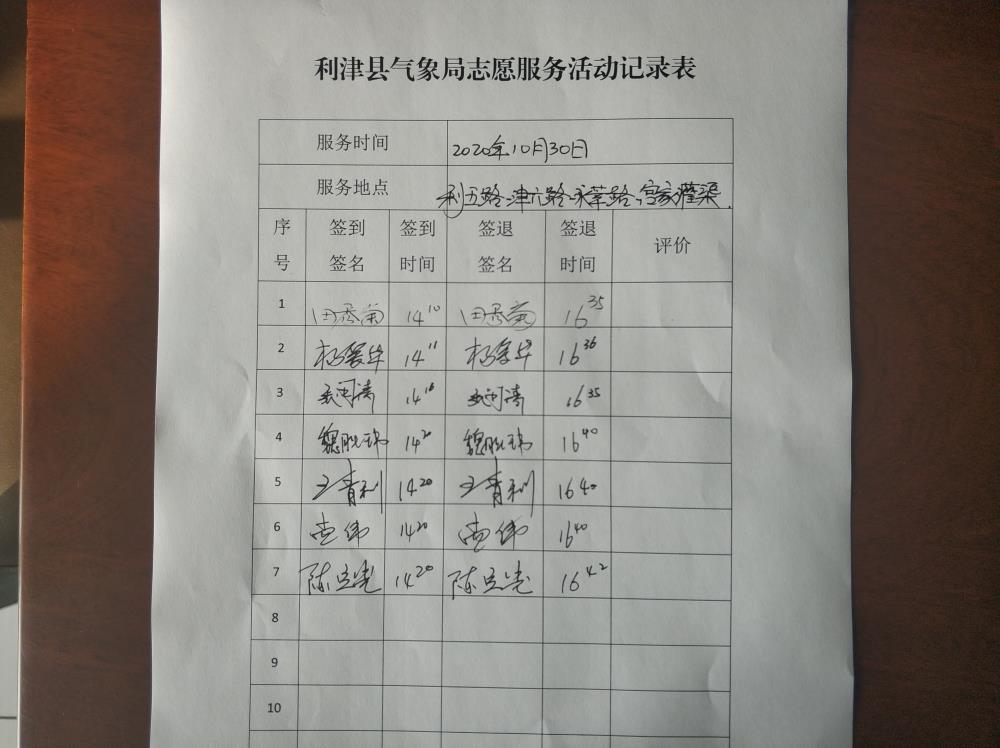 利津县气象局志愿服务活动记录表
服务时间 2020年10月30日
服务地点 利五路-津六路-永莘路-宫家灌渠.
序号 签到签名 签到时间 签退签名 签退时间 评价
1 田秀菊 14 10 田秀菊 16 35
2 杨爱华 14 11 杨爱华 16 36
3 14 16 16 35
4 魏 14 20 魏 16 40
5 王青利 14 20 王青利 16 40
6 伟 14 20 伟 16 40
7 陈立 14 20 陈立 16 42
8
9
10